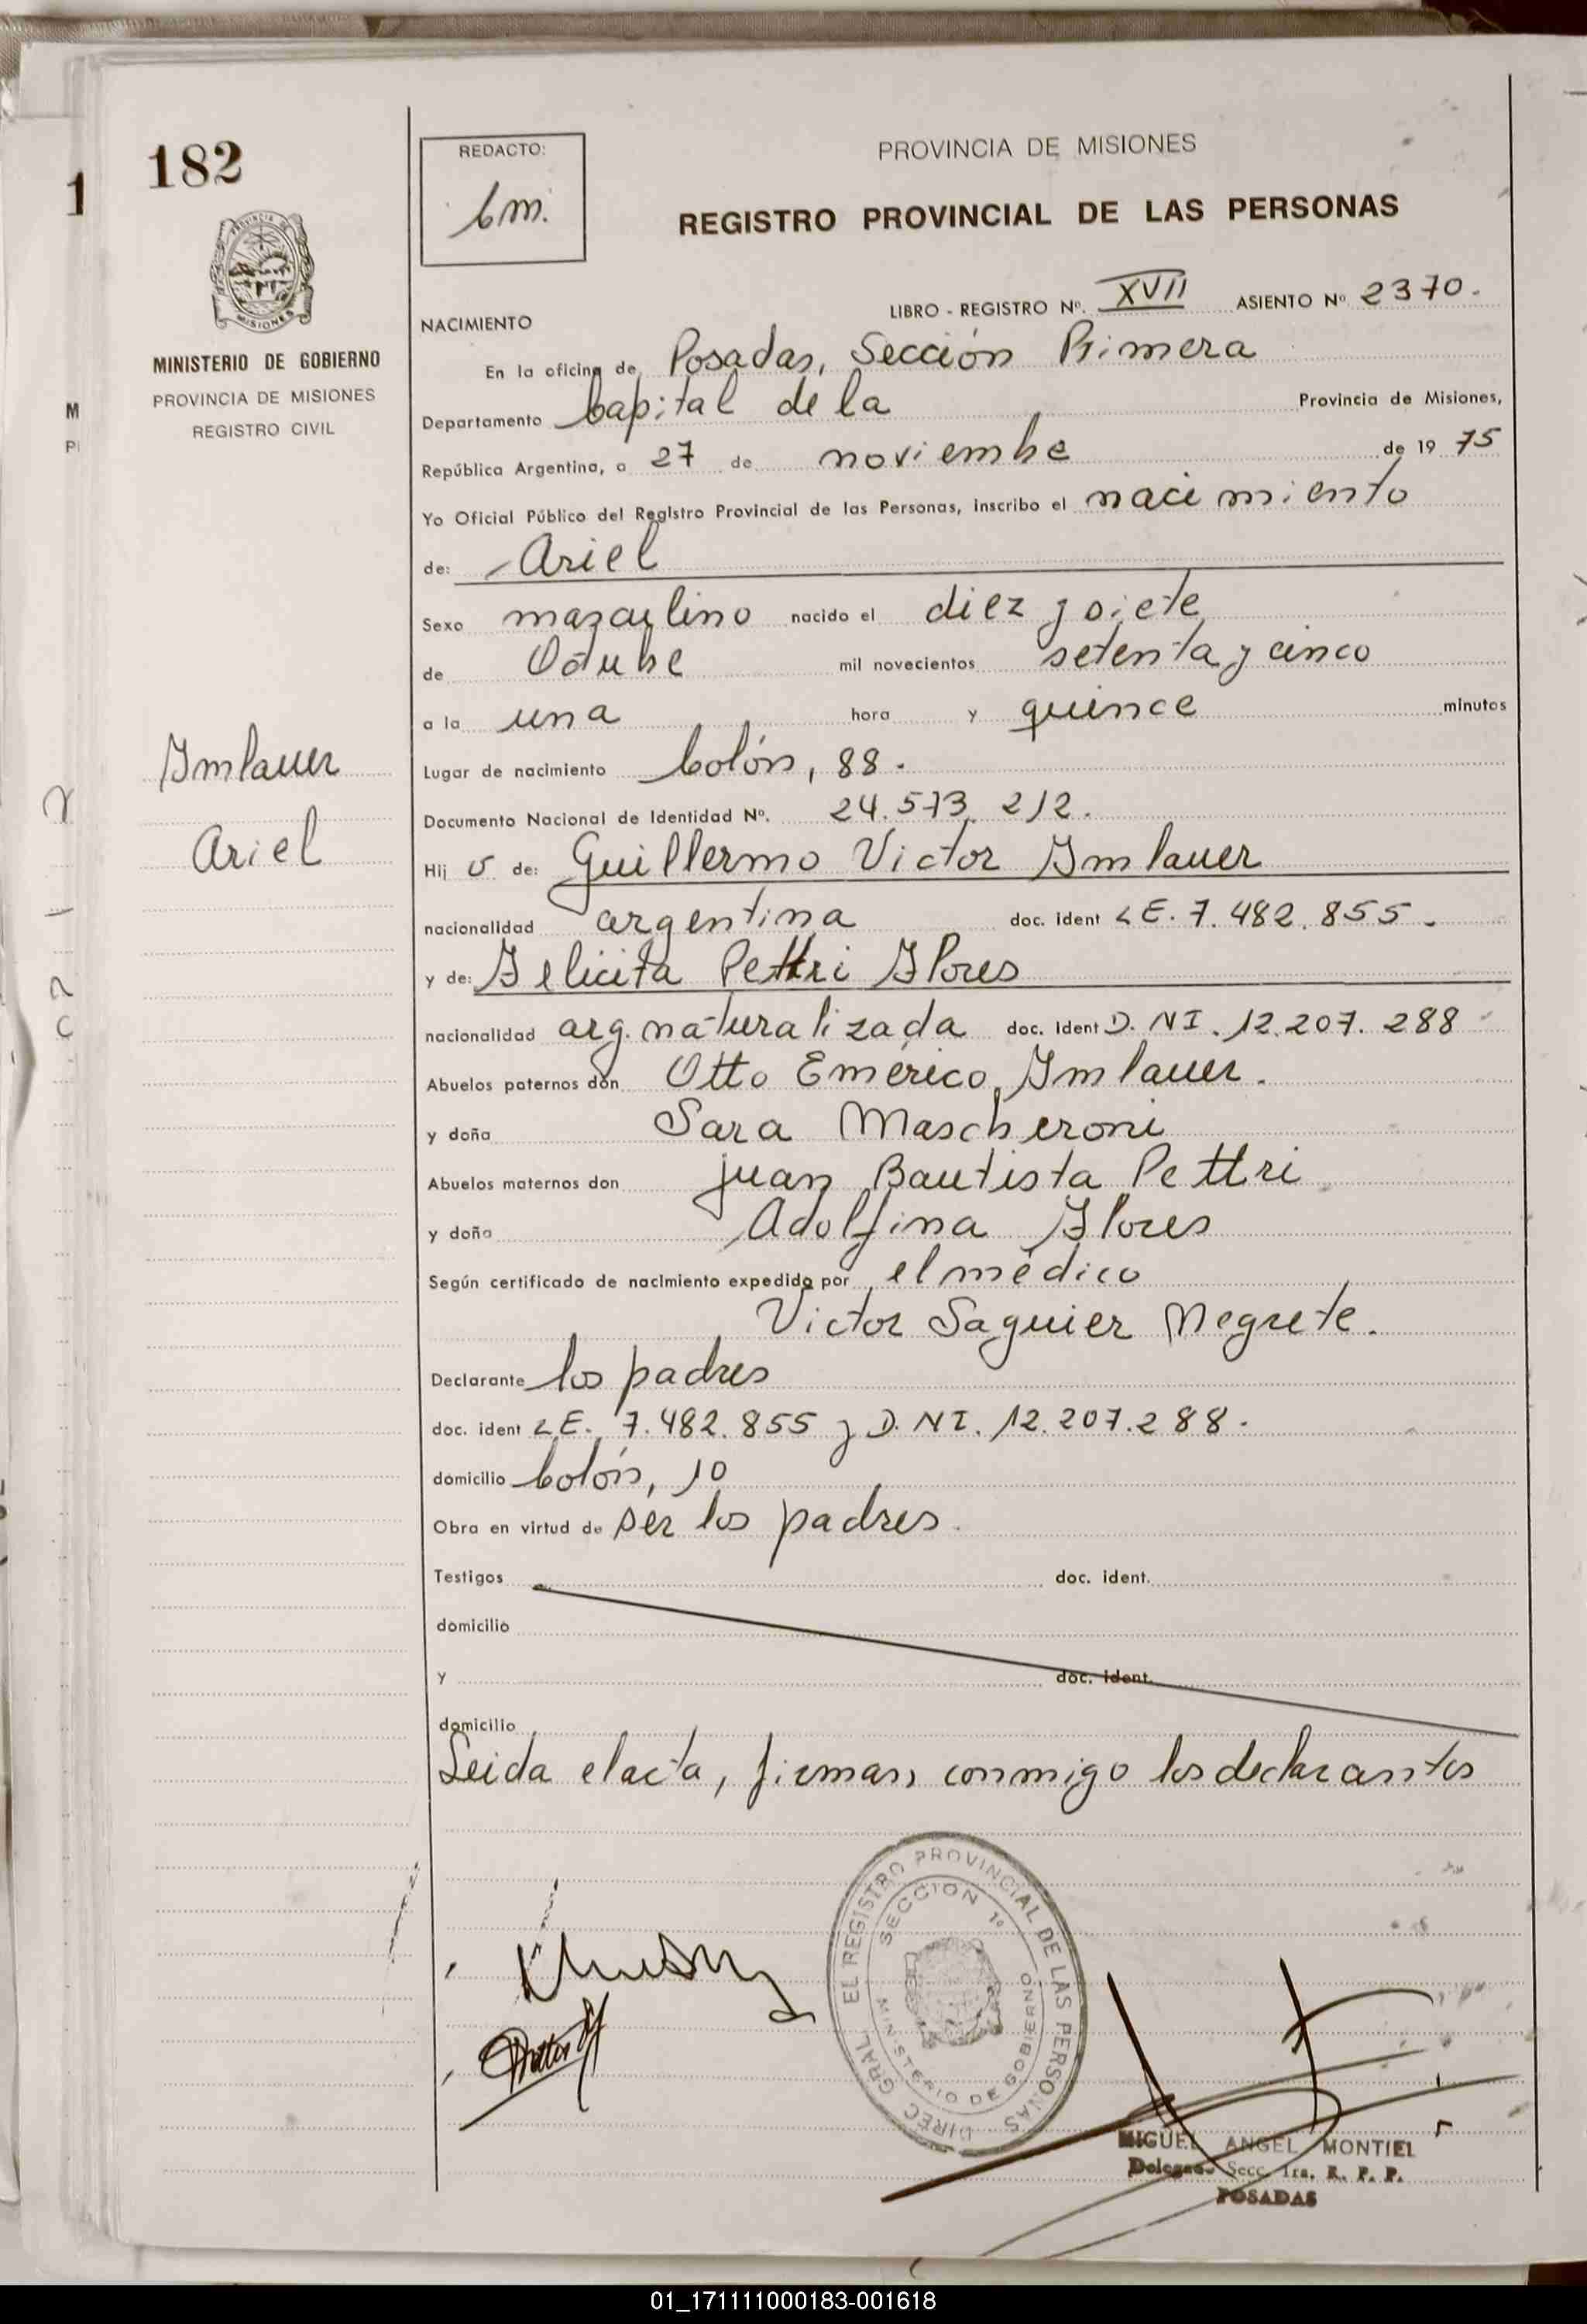 182
1
REDACTO:
PROVINCIA DE MISIONES
REGISTRO PROVINCIAL DE LAS PERSONAS
MISIONES
MINISTERIO DE GOBIERNO
PROVINCIA DE MISIONES
REGISTRO CIVIL
M
P
LIBRO - REGISTRO Nº. XVII ASIENTO Nº 2370.
NACIMIENTO
En la oficina de Posadas, Sección Primera
Departamento Capital de la Provincia de Misiones,
República Argentina, a 27 de noviembre de 19 75
Yo Oficial Público del Registro Provincial de las Personas, inscribo el nacimiento
de: Ariel
Sexo masculino nacido el diez y siete
de Octubre mil novecientos setenta y cinco
a la una hora y quince minutos
Imlauer
Ariel
Lugar de nacimiento Colón, 88.
Documento Nacional de Identidad Nº. 24.573.212.
Hij o de: Guillermo Victor Imlauer
nacionalidad argentina doc. ident LE. 7.482.855.
y de: Felicita Pettri Flores
nacionalidad arg. naturalizada doc. ident D.NI. 12.207.288
Abuelos paternos don Otto Emérico Imlauer.
y doña Sara Mascheroni
Abuelos maternos don Juan Bautista Pettri
y doña Adolfina Flores
Según certificado de nacimiento expedido por el médico
Victor Saguier Negrete.
Declarante los padres
doc. ident LE. 7.482.855 y D.NI. 12.207.288.
domicilio Colón, 10
Obra en virtud de ser los padres.
Testigos doc. ident.
domicilio
y doc. ident.
domicilio
Leida el acta, firman conmigo los declarantes
DIREC GRAL EL REGISTRO PROVINCIAL DE LAS PERSONAS
SECCION 1º
MINISTERIO DE GOBIERNO
MIGUEL ANGEL MONTIEL
Delegado Secc. 1ra. R. P. P.
POSADAS
01_171111000183-001618